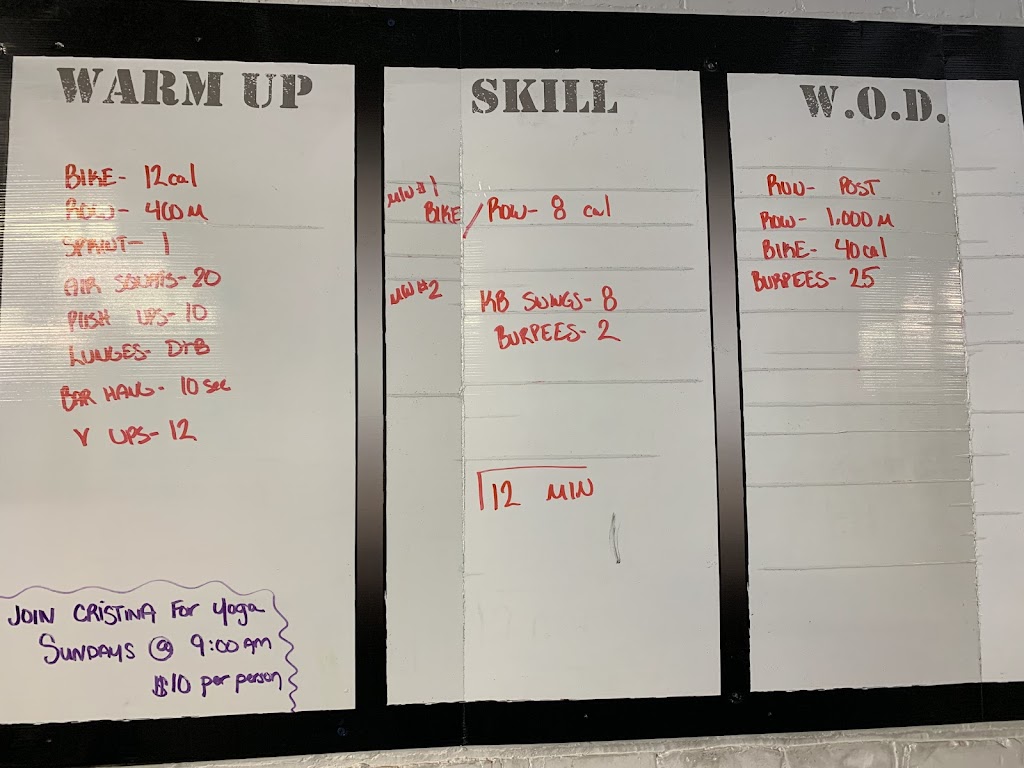 WARM UP
BIKE- 12cal
ROW- 400M
SPRINT- 1
AIR SQUATS- 20
PUSH UPS- 10
LUNGES- D+B
BAR HANG- 10 sec
V UPS- 12
JOIN CRISTINA For Yoga
SUNDAYS @ 9:00 AM
$10 per person
SKILL
MIN #1
BIKE / ROW- 8 cal
MIN #2
KB SWINGS- 8
BURPEES- 2
12 MIN
W.O.D.
RUN- POST
ROW- 1,000 M
BIKE- 40cal
BURPEES- 25